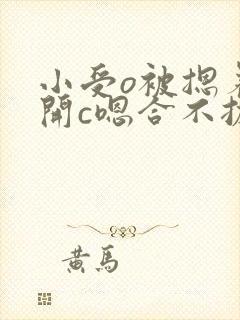 小受o被摁着
開c嗯合不拢
黄馬